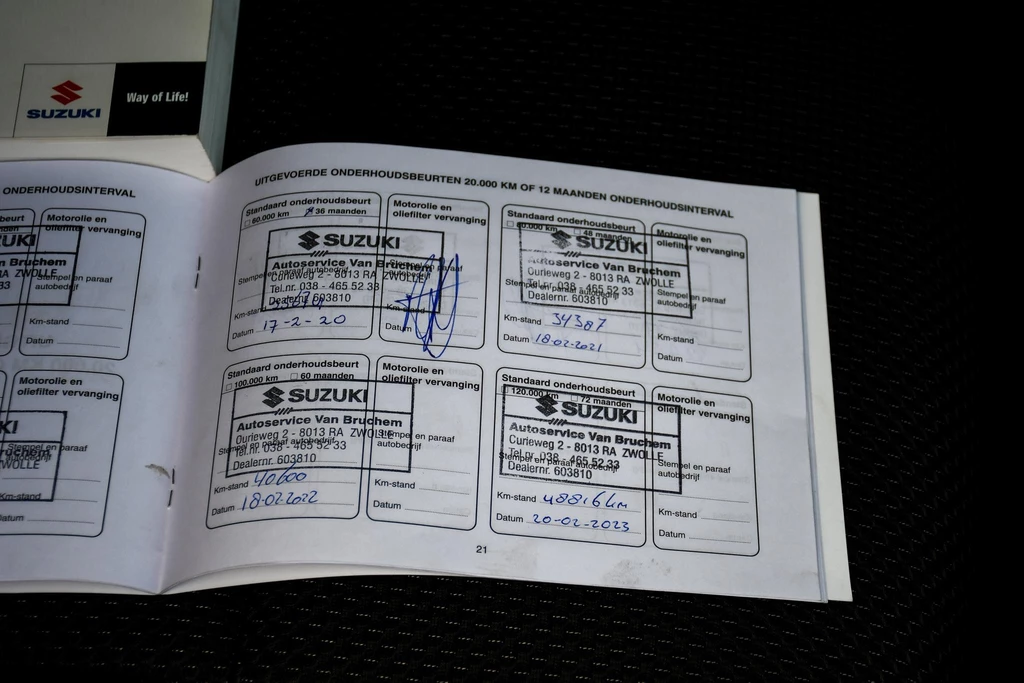 SUZUKI
Way of Life!
ONDERHOUDSINTERVAL
beurt
Motorolie en
oliefilter vervanging
ZUKI
an Bruchem
RA ZWOLLE
52 33
Stempel en paraaf
autobedrijf
Km-stand
Datum
Motorolie en
oliefilter vervanging
KI
ruchem
ZWOLLE
Stempel en paraaf
autobedrijf
Km-stand
Datum
UITGEVOERDE ONDERHOUDSBEURTEN 20.000 KM OF 12 MAANDEN ONDERHOUDSINTERVAL
Standaard onderhoudsbeurt
60.000 km 36 maanden
SUZUKI
Autoservice Van Bruchem
Stempel en paraaf autobedrijf
Curieweg 2 - 8013 RA ZWOLLE
Tel.nr. 038 - 465 52 33
Dealernr. 603810
Km-stand
Datum 17-2-20
Motorolie en
oliefilter vervanging
Km-stand
Datum
Standaard onderhoudsbeurt
80.000 km 48 maanden
SUZUKI
Autoservice Van Bruchem
Curieweg 2 - 8013 RA ZWOLLE
Tel.nr. 038 - 465 52 33
Stempel en paraaf autobedrijf
Dealernr. 603810
Km-stand 34387
Datum 18-02-2021
Motorolie en
oliefilter vervanging
Stempel en paraaf
autobedrijf
Km-stand
Datum
Standaard onderhoudsbeurt
100.000 km 60 maanden
SUZUKI
Autoservice Van Bruchem
Curieweg 2 - 8013 RA ZWOLLE
Stempel en paraaf autobedrijf
Tel.nr. 038 - 465 52 33
Dealernr. 603810
Km-stand 40600
Datum 18-02-2022
Motorolie en
oliefilter vervanging
Stempel en paraaf
autobedrijf
Km-stand
Datum
Standaard onderhoudsbeurt
120.000 km 72 maanden
SUZUKI
Autoservice Van Bruchem
Curieweg 2 - 8013 RA ZWOLLE
Tel.nr. 038 - 465 52 33
Stempel en paraaf autobedrijf
Dealernr. 603810
Km-stand 48816 km
Datum 20-02-2023
Motorolie en
oliefilter vervanging
Stempel en paraaf
autobedrijf
Km-stand
Datum
21